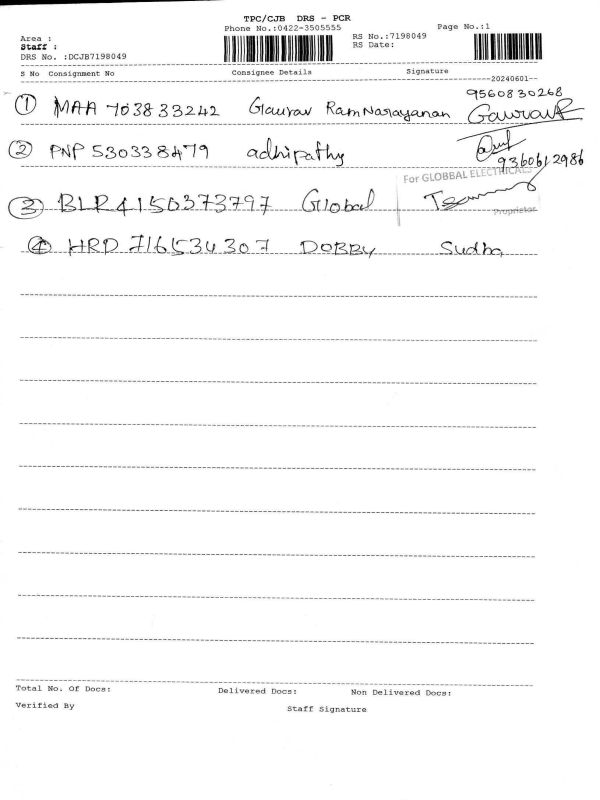 TPC/CJB DRS - PCR
Phone No.:0422-3505555 Page No.:1
Area : RS No.:7198049
Staff : RS Date:
DRS No. :DCJB7198049
S No Consignment No Consignee Details Signature
20240601
9560830268
1 MAA 703833242 Gaurav RamNarayanan GauravR
2 PNP 530338479 adhipathy
9360612986
For GLOBBAL ELECTRICALS
3 BLR4150373797 Global
Proprietor
4 HRD 716534307 DOBBY Sudha
Total No. Of Docs: Delivered Docs: Non Delivered Docs:
Verified By Staff Signature